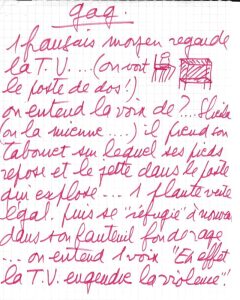 gag.
1 français moyen regarde
la T.V.... (on voit
le poste de dos!)
on entend la voix de ?... Sheila
(ou la mienne....) il prend son
tabouret sur lequel ses pieds
repose et le jette dans le poste
qui explose... 1 plante verte
légal. puis se "réfugie" à nouveau
dans son fauteuil fond orage
... on entend 1 voix "En effet
la T.V. engendre la violence"!